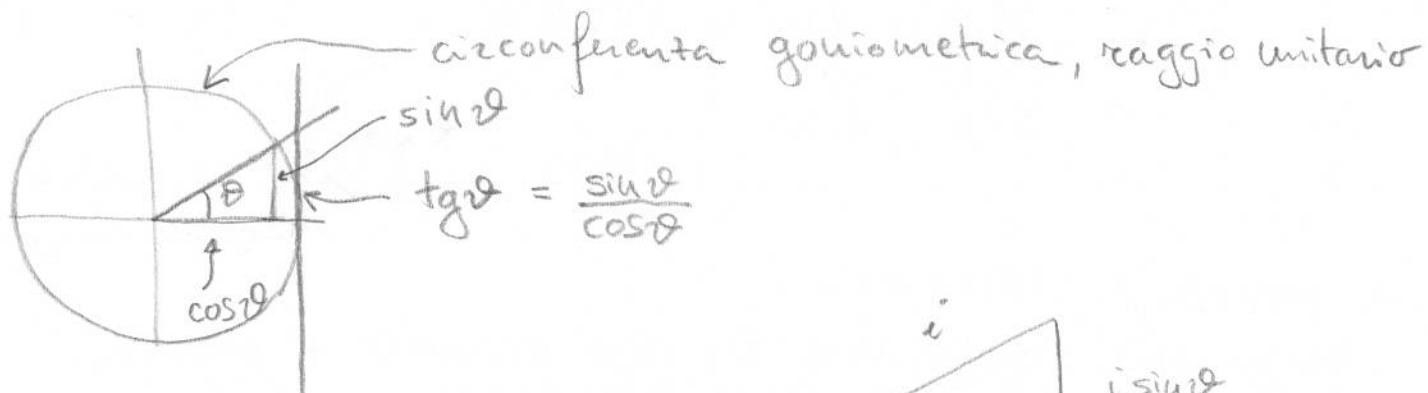 circonferenza goniometrica, raggio unitario
sin ϑ
θ
tg ϑ = sin ϑ / cos ϑ
cos ϑ
i
i sin ϑ